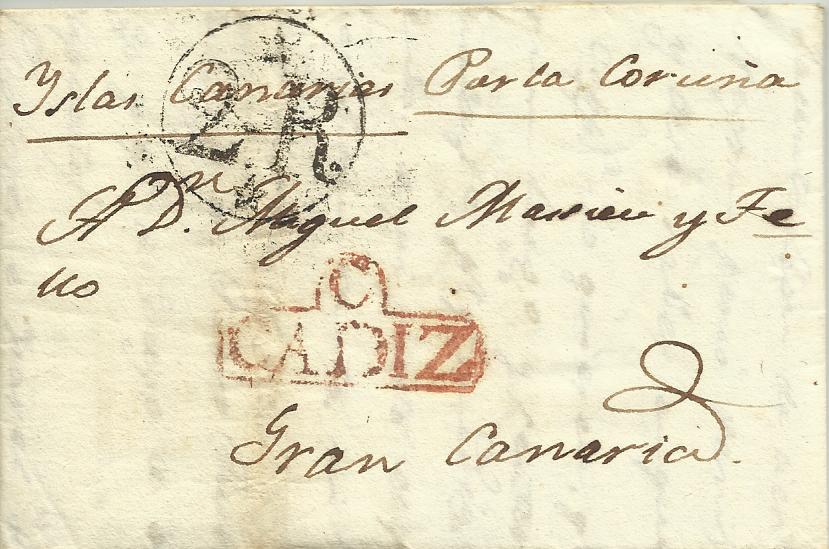 Yslas Canarias Por la Coruña
2 R.
A Dn. Miguel Massieu y Fe
llo
C
CADIZ
Gran Canaria.